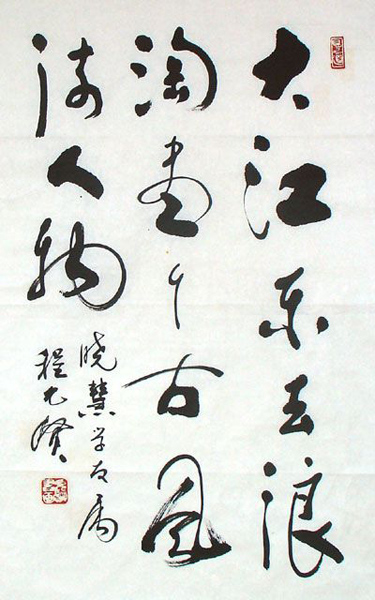 大江东去浪
淘盡千古風
流人物
晓慧学友属
程允贤